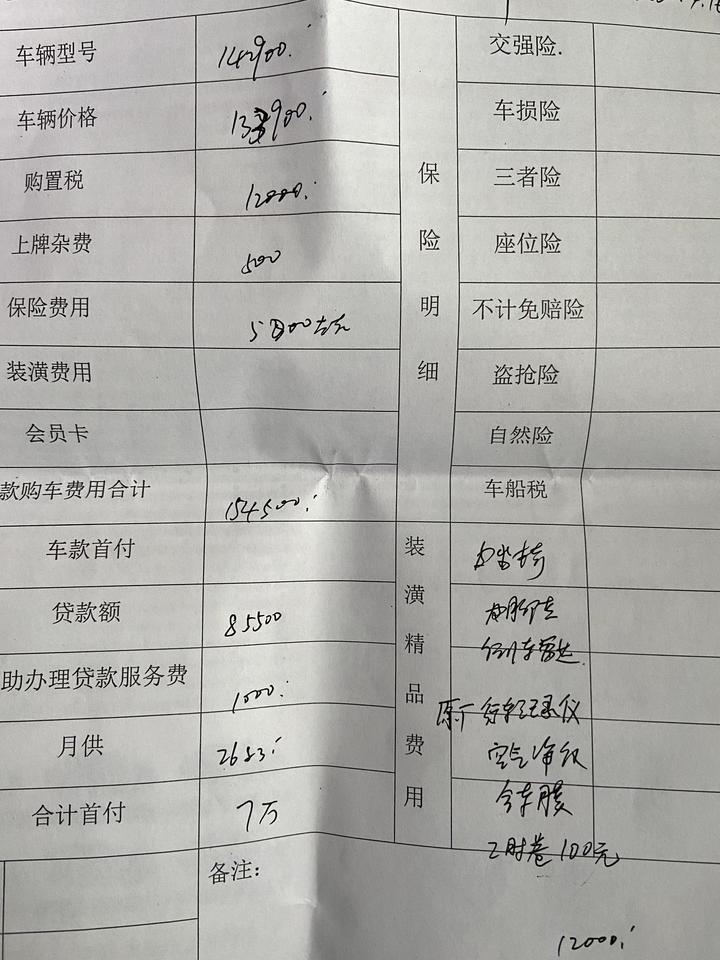 车辆型号 142900. 交强险.
车辆价格 900. 车损险
购置税 12000. 三者险
上牌杂费 500 座位险
保险费用 5 不计免赔险
装潢费用 盗抢险
会员卡 自然险
款购车费用合计 154500. 车船税
车款首付
贷款额 85500
助办理贷款服务费 1000.
月供 2683.
合计首付 7万
保险明细
装潢精品费用
原厂行车记录仪
空气净化
全车膜
工时卷100元
备注:
12000.